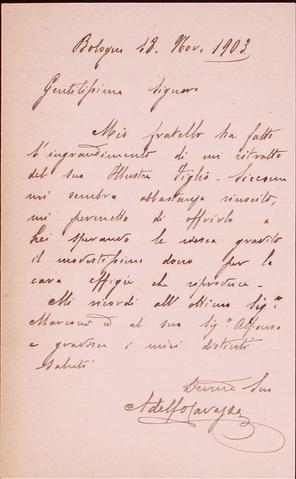 Bologna 28. Nov. 1903
Gentilissima Signora
Mio fratello ha fatto
l'ingrandimento di un ritratto
del suo Illustre Figlio. Siccome
mi sembra abbastanza riuscito,
mi permetto di offrirlo a
Lei sperando le riesca gradito
il modestissimo dono per la
cara effigie che riproduce.
Mi ricordi all'ottimo Sig.r
ed al suo Sig.r Alfonso
e gradisca i miei distinti
saluti
Devmo Suo
Adelfo Cavazza